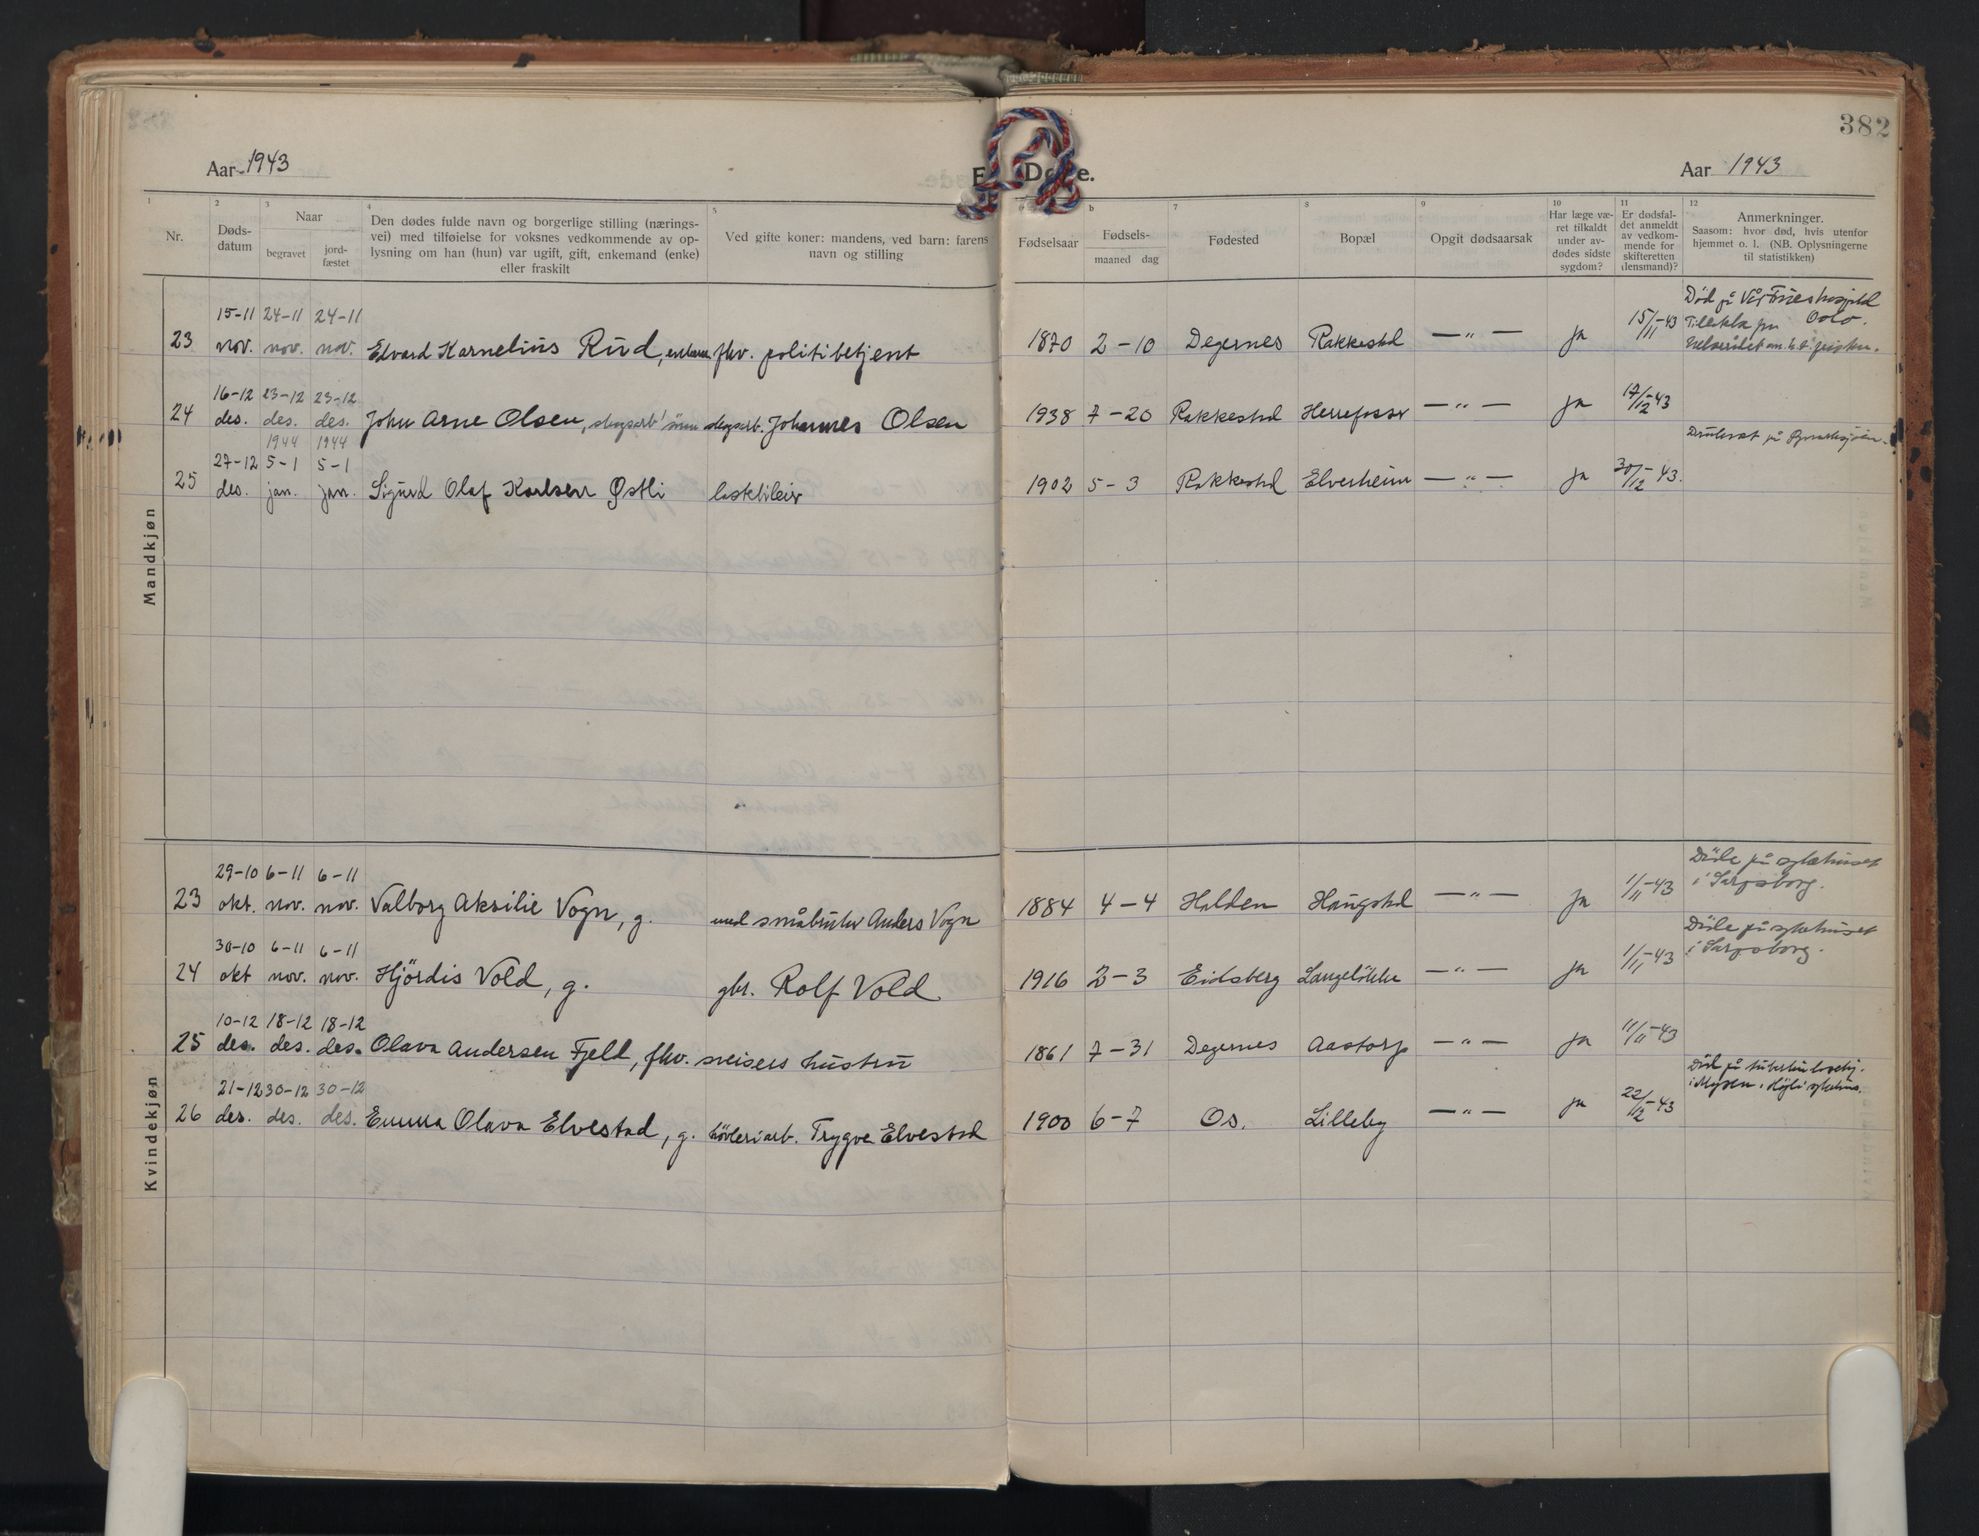 382
Aar 1943
Døde.
Aar 1943
1 2 3 4 5 6 b 7 8 9 10 11 12
Nr.
Døds-
datum
Naar
begravet
jord-
fæstet
Den dødes fulde navn og borgerlige stilling (nærings-
vei) med tilføielse for voksnes vedkommende av op-
lysning om han (hun) var ugift, gift, enkemand (enke)
eller fraskilt
Ved gifte koner: mandens, ved barn: farens
navn og stilling
Fødselsaar
Fødsels-
maaned dag
Fødested
Bopæl
Opgit dødsaarsak
Har læge væ-
ret tilkaldt
under av-
dødes sidste
sygdom?
Er dødsfal-
det anmeldt
av vedkom-
mende for
skifteretten
(lensmand)?
Anmerkninger.
Saasom: hvor død, hvis utenfor
hjemmet o. l. (NB. Oplysningerne
til statistikken)
Mandkjøn
15-11 24-11 24-11 Død på Vår Frues hospital
Oslo.
23 nov. nov. nov. Edvard Karnelius Rud, fhv. politibetjent 1870 2-10 Degernes Rakkestad — „ — ja 15/11-43
16-12 23-12 23-12
24 des. des. des. John Arne Olsen, skogsarb. Johannes Olsen 1938 7-20 Rakkestad Herrefoss — „ — ja 17/12-43
1944 1944
27-12 5-1 5-1
25 des. jan. jan. Sigurd Olaf Karlsen Østli lastebileier 1902 5-3 Rakkestad Elverheim — „ — ja 30/12-43.
Kvindekjøn
29-10 6-11 6-11 Døde på sykehuset
i Sarpsborg.
23 okt. nov. nov. Valborg Aksilie Vogn, g. med småbruker Anders Vogn 1884 4-4 Halden Haugstad — „ — ja 1/11-43
30-10 6-11 6-11 Døde på sykehuset
i Sarpsborg.
24 okt nov. nov. Hjördis Vold, g. gbr. Rolf Vold 1916 2-3 Eidsberg Langeløkka — „ — ja 1/11-43
10-12 18-12 18-12
25 des. des. des. Olava Andersen Fjeld, fhv. sveisers hustru 1861 7-31 Degernes Aastorp — „ — ja 11/11-43
21-12 30-12 30-12 Död på
i Mysen
26 des. des. des. Emma Olava Elvestad, g. høvleriarb. Trygve Elvestad 1900 6-7 Os. Lilleby — „ — ja 22/12-43